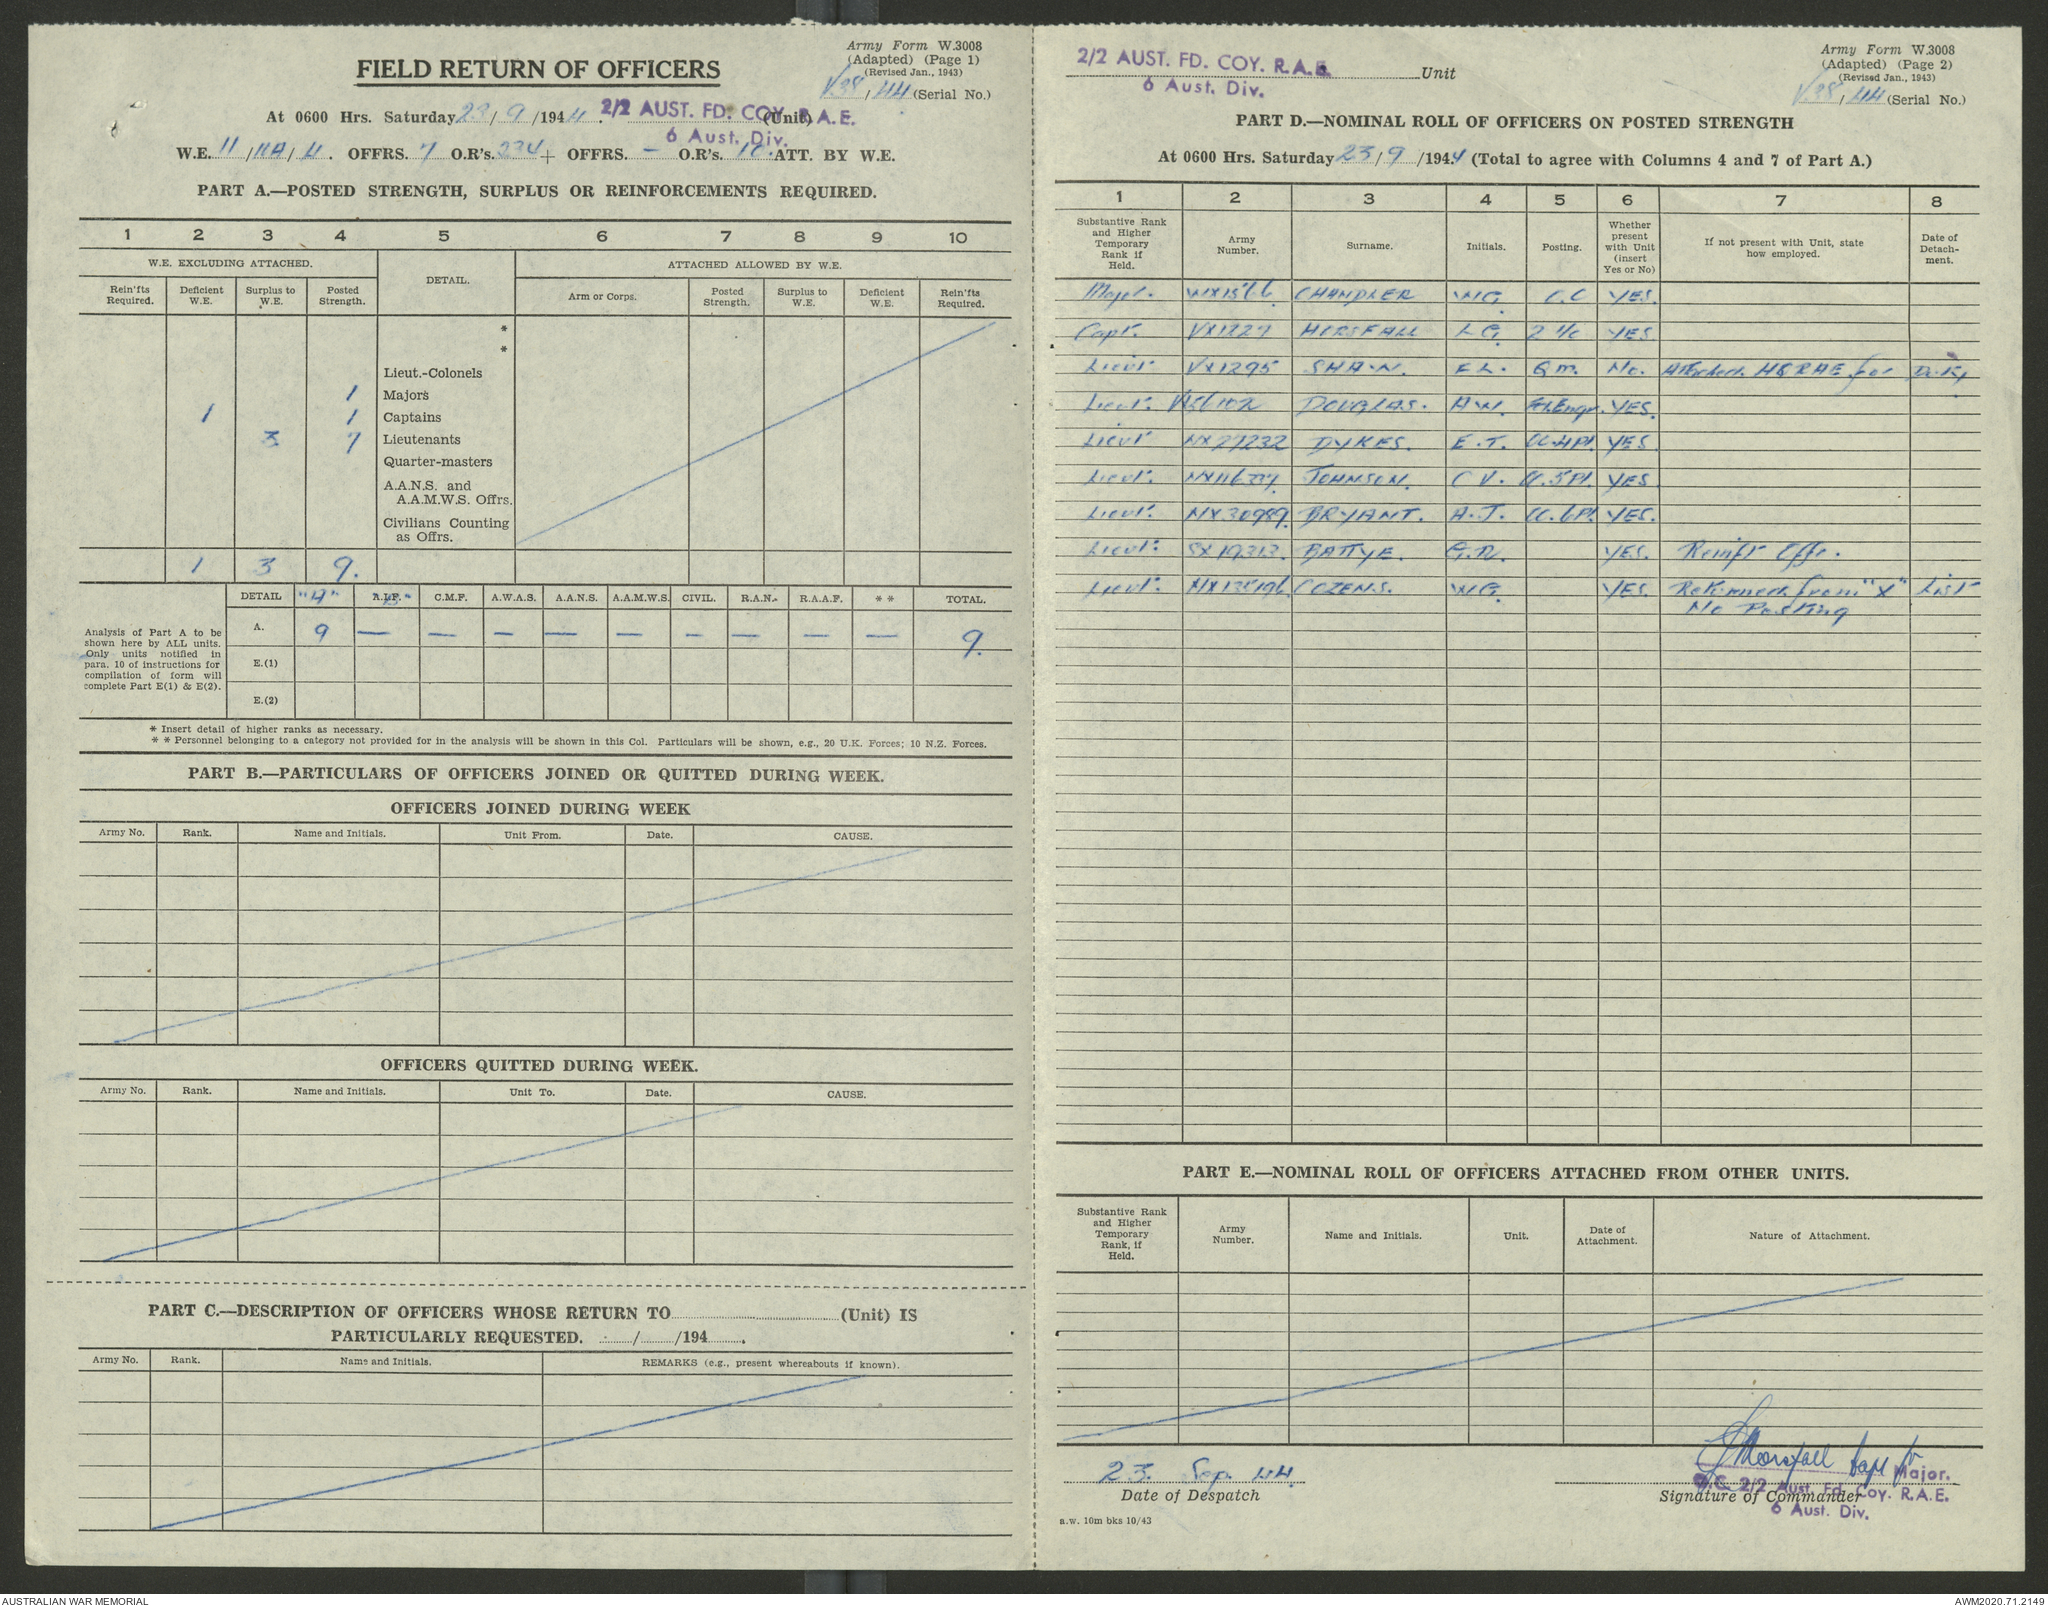 FIELD RETURN OF OFFICERS
Army Form W.3008
(Adapted) (Page 1)
(Revised Jan., 1943)
V.38/44 (Serial No.)
At 0600 Hrs. Saturday 23/9/1944. 2/2 AUST. FD. COY. R.A.E. (Unit)
6 Aust. Div.
W.E. 11/11A/4. OFFRS. 7 O.R's. 234 + OFFRS. - O.R's. 10. ATT. BY W.E.
PART A.—POSTED STRENGTH, SURPLUS OR REINFORCEMENTS REQUIRED.
1 2 3 4 5 6 7 8 9 10
W.E. EXCLUDING ATTACHED. DETAIL. ATTACHED ALLOWED BY W.E.
Rein'fts Required. Deficient W.E. Surplus to W.E. Posted Strength. Arm or Corps. Posted Strength. Surplus to W.E. Deficient W.E. Rein'fts Required.
*
*
Lieut.-Colonels
1 Majors
1 1 Captains
3 7 Lieutenants
Quarter-masters
A.A.N.S. and
A.A.M.W.S. Offrs.
Civilians Counting
as Offrs.
1 3 9.
DETAIL "A" A.I.F. "B" C.M.F. A.W.A.S. A.A.N.S. A.A.M.W.S. CIVIL. R.A.N. R.A.A.F. * * TOTAL.
Analysis of Part A to be
shown here by ALL units.
Only units notified in
para. 10 of instructions for
compilation of form will
complete Part E(1) & E(2).
A. 9 — — — — — — — — — 9.
E.(1)
E.(2)
* Insert detail of higher ranks as necessary.
* * Personnel belonging to a category not provided for in the analysis will be shown in this Col. Particulars will be shown, e.g., 20 U.K. Forces; 10 N.Z. Forces.
PART B.—PARTICULARS OF OFFICERS JOINED OR QUITTED DURING WEEK.
OFFICERS JOINED DURING WEEK
Army No. Rank. Name and Initials. Unit From. Date. CAUSE.
OFFICERS QUITTED DURING WEEK.
Army No. Rank. Name and Initials. Unit To. Date. CAUSE.
PART C.—DESCRIPTION OF OFFICERS WHOSE RETURN TO (Unit) IS
PARTICULARLY REQUESTED. / /194 .
Army No. Rank. Name and Initials. REMARKS (e.g., present whereabouts if known).
2/2 AUST. FD. COY. R.A.E. Unit
6 Aust. Div.
Army Form W.3008
(Adapted) (Page 2)
(Revised Jan., 1943)
V.38/44 (Serial No.)
PART D.—NOMINAL ROLL OF OFFICERS ON POSTED STRENGTH
At 0600 Hrs. Saturday 23/9/1944 (Total to agree with Columns 4 and 7 of Part A.)
1 2 3 4 5 6 7 8
Substantive Rank and Higher Temporary Rank if Held. Army Number. Surname. Initials. Posting. Whether present with Unit (insert Yes or No) If not present with Unit, state how employed. Date of Detach-ment.
Major. CHANDLER W.G. O.C YES.
Capt. VX1227 HORSFALL L.G. 2 i/c YES.
Lieut. VX1295 SHAW. E L. Q m. No. Attached HQRAE for Duty
Lieut. DOUGLAS. A.W. YES.
Lieut. NX27232 DYKES. E.T. OC.4Pl. YES
Lieut. JOHNSON. C V. OC.5Pl. YES
Lieut. NX30989. BRYANT. A.J. OC.6Pl. YES.
Lieut. SX19313. BATTYE. G.R. YES. Reinft Offr.
Lieut. COZENS. W.G. YES. Returned from "X" List
No Posting
PART E.—NOMINAL ROLL OF OFFICERS ATTACHED FROM OTHER UNITS.
Substantive Rank and Higher Temporary Rank, if Held. Army Number. Name and Initials. Unit. Date of Attachment. Nature of Attachment.
23 Sep. 44.
Date of Despatch
Horsfall Capt for Major.
O.C. 2/2 Aust. Fd. Coy. R.A.E.
Signature of Commander
6 Aust. Div.
a.w. 10m bks 10/43
AUSTRALIAN WAR MEMORIAL
AWM2020.71.2149